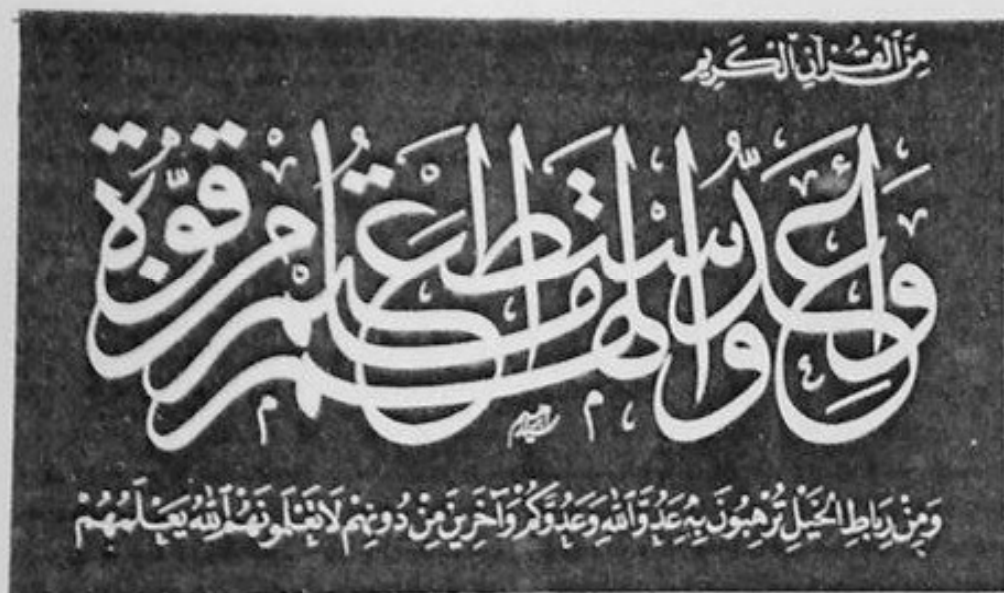 مِنَ ٱلْقُرْآنِ ٱلْكَرِيمِ
وَأَعِدُّوا لَهُم مَّا اسْتَطَعْتُم مِّن قُوَّةٍ
وَمِنْ رِبَاطِ الْخَيْلِ تُرْهِبُونَ بِهِ عَدُوَّ اللهِ وَعَدُوَّكُمْ وَآخَرِينَ مِنْ دُونِهِمْ لَا تَعْلَمُونَهُمُ اللهُ يَعْلَمُهُمْ